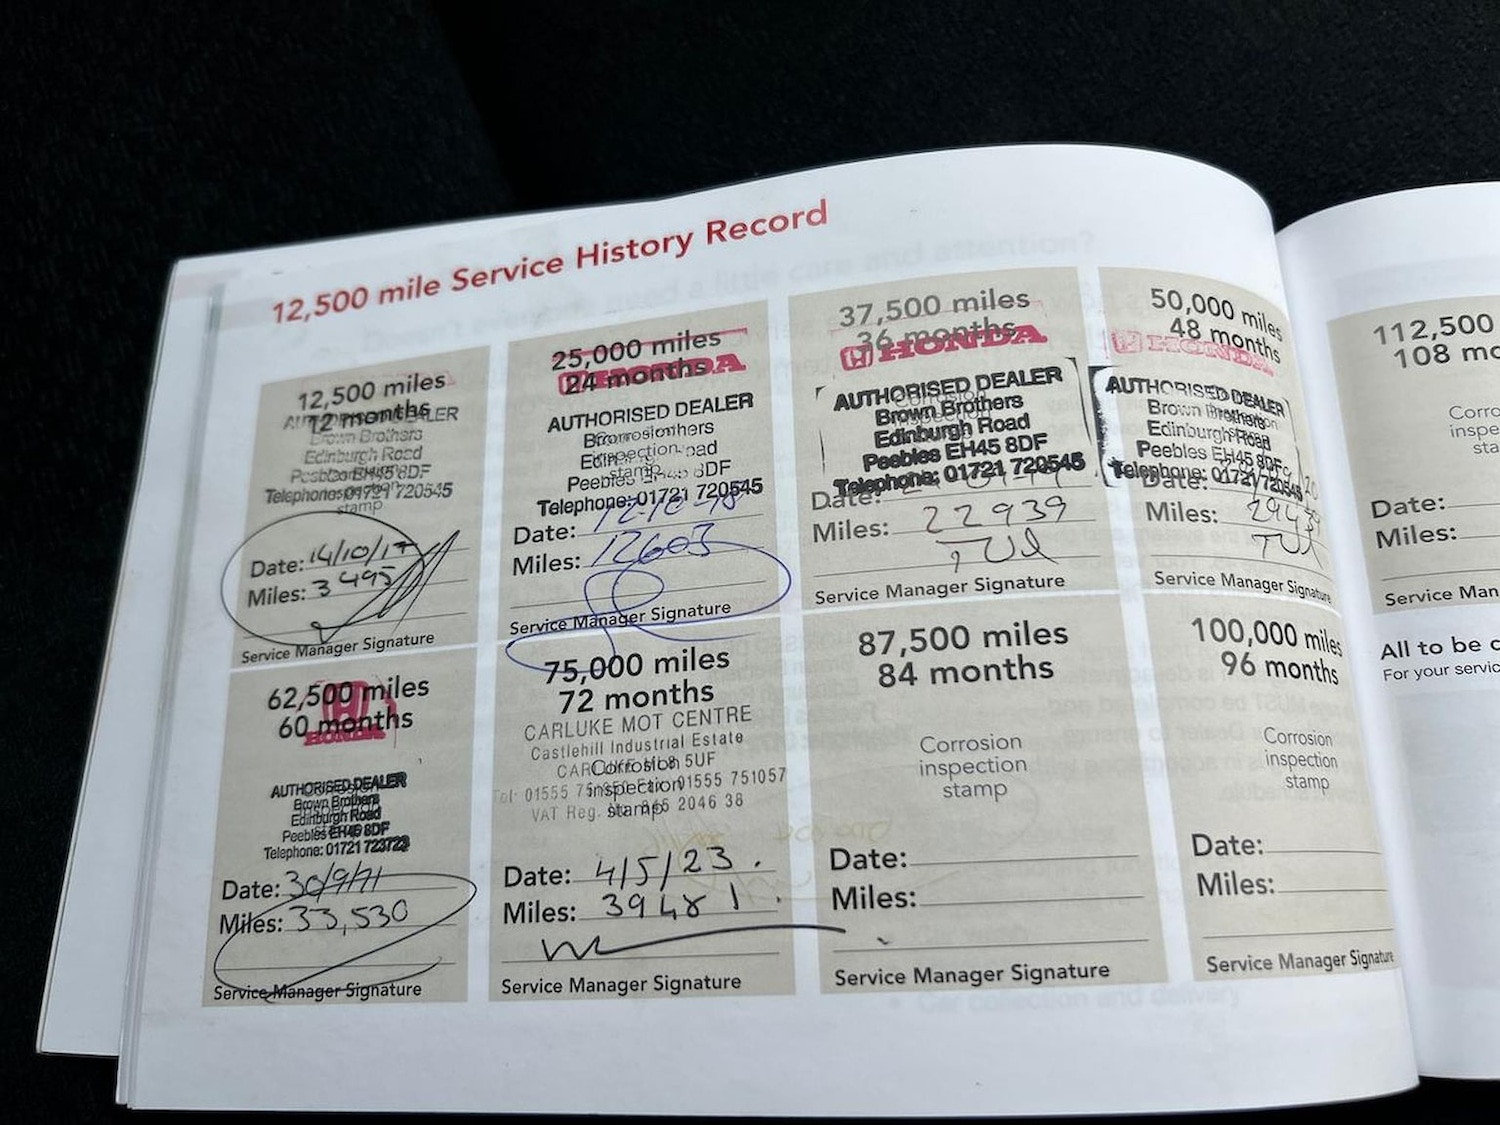 12,500 mile Service History Record
12,500 miles
12 months
AUTHORISED DEALER
Brown Brothers
Edinburgh Road
Peebles EH45 8DF
Telephone: 01721 720545
stamp
Date: 14/10/17
Miles: 3495
Service Manager Signature
25,000 miles
24 months
HONDA
AUTHORISED DEALER
Corrosion
inspection
stamp
Peebles EH45 8DF
Telephone: 01721 720545
Date: 12-10-18
Miles: 12603
Service Manager Signature
37,500 miles
36 months
HONDA
AUTHORISED DEALER
Corrosion
Brown Brothers
inspection
Edinburgh Road
Peebles EH45 8DF
Telephone: 01721 720545
Date:
Miles: 22939
Service Manager Signature
50,000 miles
48 months
HONDA
AUTHORISED DEALER
Brown Brothers
Edinburgh Road
Peebles EH45 8DF
Telephone: 01721 720545
Date:
Miles: 29439
Service Manager Signature
112,500
108 mo
Corro
inspe
sta
Date:
Miles:
Service Man
62,500 miles
60 months
HONDA
AUTHORISED DEALER
Brown Brothers
Edinburgh Road
Peebles EH45 8DF
Telephone: 01721 723723
Date: 30/9/21
Miles: 33,530
Service Manager Signature
75,000 miles
72 months
CARLUKE MOT CENTRE
Castlehill Industrial Estate
CARLUKE ML8 5UF
Corrosion
inspection
stamp
01555 751057
VAT Reg. No. 845 2046 38
Date: 4/5/23.
Miles: 39481.
Service Manager Signature
87,500 miles
84 months
Corrosion
inspection
stamp
Date:
Miles:
Service Manager Signature
100,000 miles
96 months
Corrosion
inspection
stamp
Date:
Miles:
Service Manager Signature
All to be c
For your servic